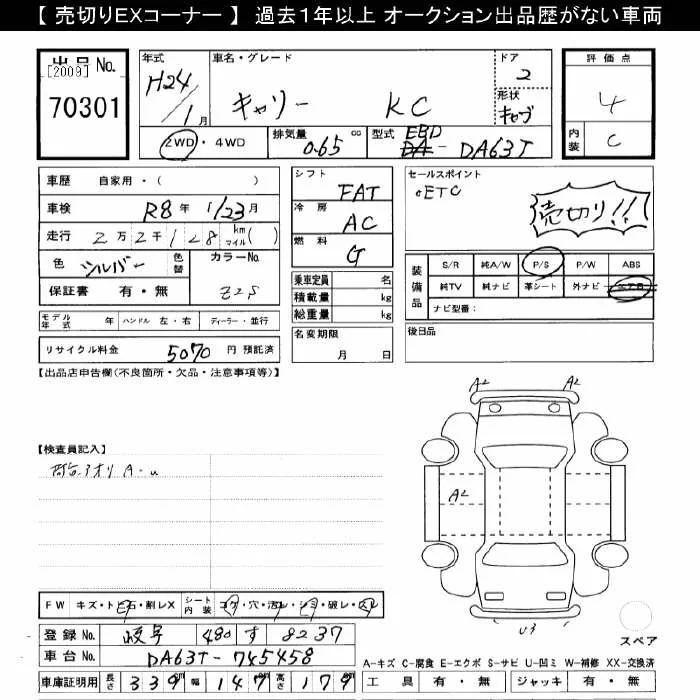 【 売切りEXコーナー 】 過去１年以上 オークション出品歴がない車両
出品No.
[2009]
70301
年式
H24/1月
車名・グレード
キャリー KC
ドア
2
形状
キャブ
評価点
4
内装
C
2WD・4WD
排気量
0.65 cc
型式
EBD
DA- DA63T
車歴 自家用・( )
車検 R8年 1/23月
走行 2万2千128 km マイル( )
色 シルバー 色替 カラーNo.
保証書 有・無 Z2S
シフト
FAT
冷房
AC
燃料
G
乗車定員 名
積載量 kg
総重量 kg
セールスポイント
ETC
売切り!!
装備品
S/R 純A/W P/S P/W ABS
純TV 純ナビ 革シート 外ナビ
ナビ型番:
モデル年式 年 ハンドル 左・右 ディーラー・並行
リサイクル料金 5070 円 預託済
名変期限
月 日
後日品
【出品店申告欄(不良箇所・欠品・注意事項等)】
A2 A2
A2
U3
スペア
【検査員記入】
アオリ A-u
FW キズ・トビ石・割レX シート内装 コゲ・穴・汚レ・シミ・破レ・スレ
登録No. 岐阜 480 す 8237
車台No. DA63T-745458
車庫証明用 長さ 339 幅 147 高さ 179
A-キズ C-腐食 E-エクボ S-サビ U-凹ミ W-補修 XX-交換済
工具 有・無 ジャッキ 有・無